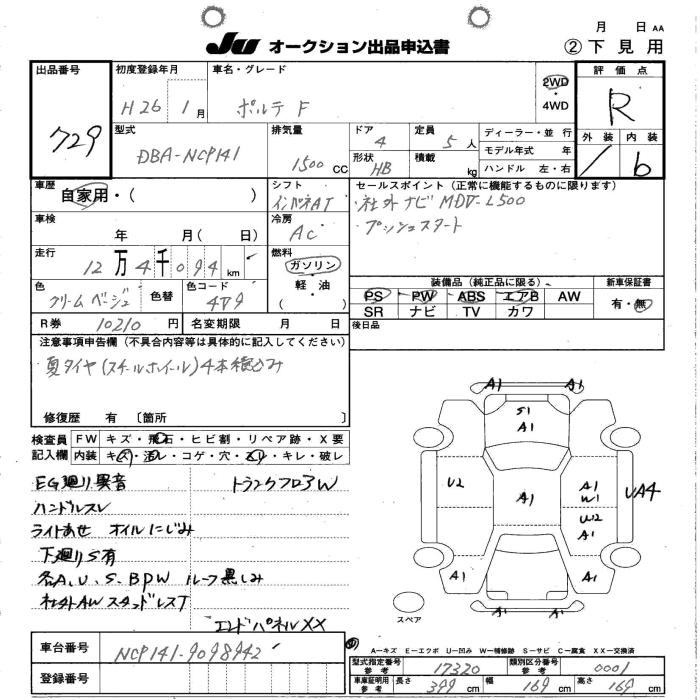 月 日 AA
JU オークション出品申込書
② 下見用
出品番号
729
初度登録年月
H26 1月
車名・グレード
ポルテ F
2WD
・
4WD
評価点
R
外装 内装
/ b
型式
DBA-NCP141
排気量
1500 CC
ドア
4
定員
5人
形状
HB
積載
kg
ディーラー・並行
モデル年式 年
ハンドル 左・右
車歴
自家用・( )
シフト
インパネAT
セールスポイント (正常に機能するものに限ります)
社外ナビ MDV-L500
プッシュスタート
車検
年 月( 日)
冷房
AC
走行
12万4千094km
燃料
ガソリン
軽・油
( )
色
クリームベージュ
色替
色コード
4T9
装備品 (純正品に限る)
PS PW ABS エアB AW
SR ナビ TV カワ
新車保証書
有・無
R券 10210円
名変期限 月 日
後日品
注意事項申告欄 (不具合内容等は具体的に記入してください)
夏タイヤ(スチールホイール)4本積込み
修復歴 有 〔箇所 〕
検査員
記入欄
FW キズ・飛石・ヒビ割・リペア跡・X要
内装 キズ・汚レ・コゲ・穴・スレ・キレ・破レ
EG廻り異音
トランクフロアW
ハンドルスレ
ライトあせ オイルにじみ
下廻りS有
各A、U、S、BPW ルーフ黒しみ
社外AW スタッドレスT
エンドパネルXX
A1 A1
S1
A1
U2
A1
A1
W1
U2
A1
UA4
A1
A1
A1
A1
スペア
A-キズ E-エクボ U-凹み W-補修跡 S-サビ C-腐食 XX-交換済
車台番号
NCP141-9098942
登録番号
型式指定番号
参考
17320
類別区分番号
参考
0001
車庫証明用
参考
長さ 399 cm
幅 169 cm
高さ 169 cm